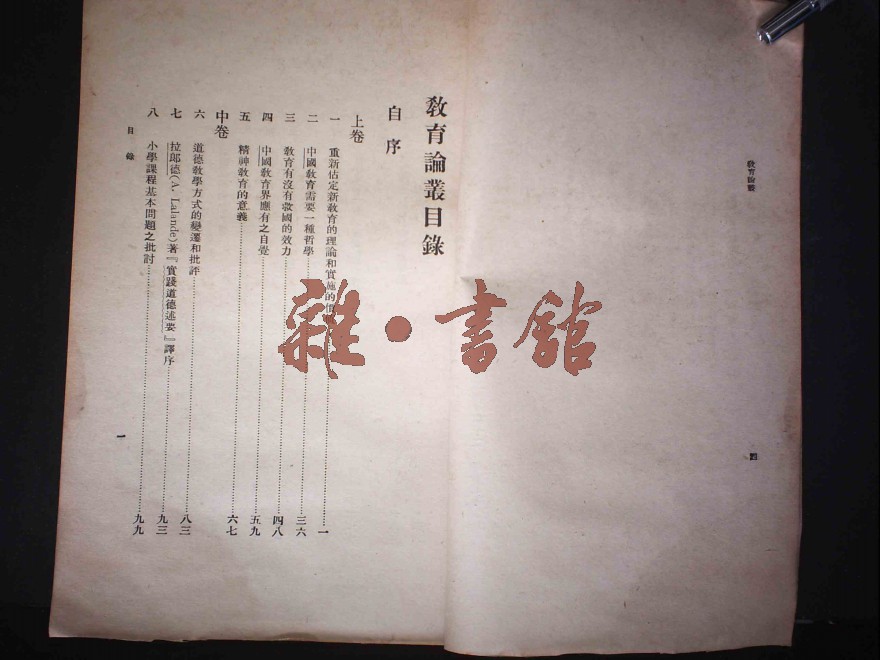 教育論叢
四
教育論叢目錄
自序
上卷
一 重新估定新教育的理論和實施的價 一
二 中國教育需要一種哲學 三六
三 教育有沒有救國的效力 四八
四 中國教育界應有之自覺 五九
五 精神教育的意義 六七
中卷
六 道德教學方式的變遷和批評 八三
七 拉郎德(A. Lalande)著『實踐道德述要』譯序 九三
八 小學課程基本問題之批討 九九
目錄
一
雜·書館